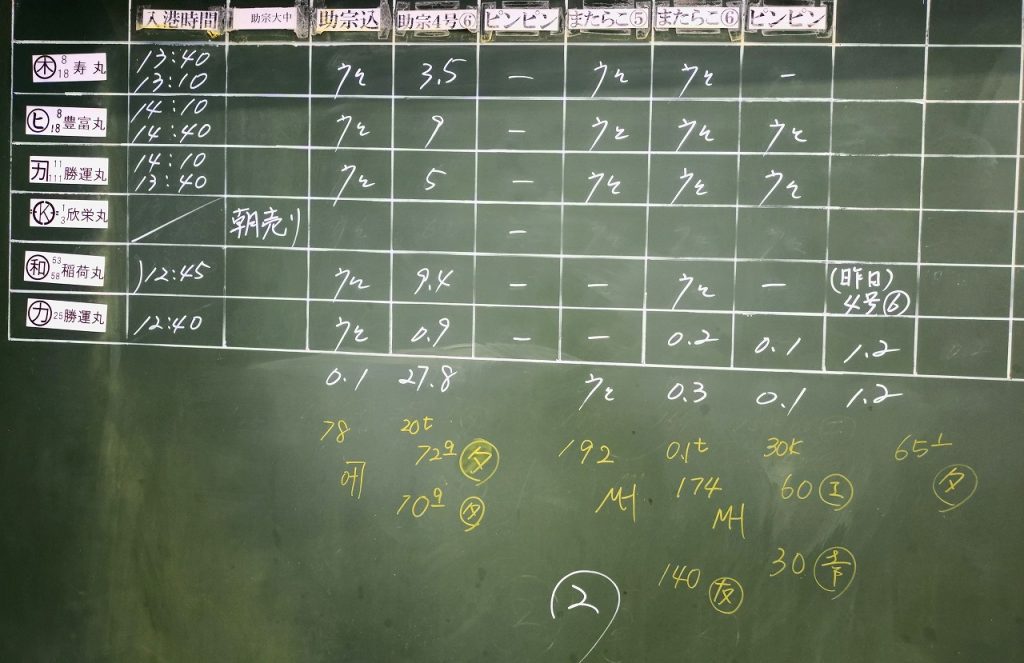 入港時間 助宗大中 助宗込 助宗4号⑥ ピンピン またらこ⑤ またらこ⑥ ピンピン
木 8 18 寿丸 13:40 13:10 ウヒ 3.5 − ウヒ ウヒ −
ヒ 8 18 豊富丸 14:10 14:40 ウヒ 9 − ウヒ ウヒ ウヒ
11 111 勝運丸 14:10 13:40 ウヒ 5 − ウヒ ウヒ ウヒ
K 1 3 欣栄丸 朝売り −
和 53 58 稲荷丸 12:45 ウヒ 9.4 − − ウヒ − (昨日) 4号⑥
カ 25 勝運丸 12:40 ウヒ 0.9 − − 0.2 0.1 1.2
0.1 27.8 ウヒ 0.3 0.1 1.2
78 20t 192 0.1t 30K 65
72 タ 174 60 エ タ
70 タ MH MH
140 友 30
2